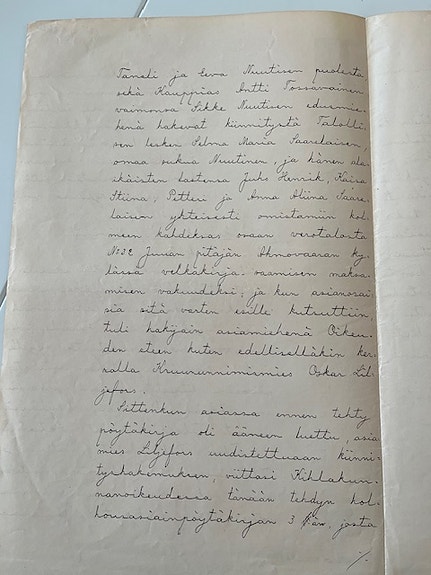 Taneli ja Eeva Nuutisen puolesta
sekä Kauppias Antti Tossavainen
vaimonsa Sikke Nuutisen edesmie-
henä hakevat kiinnitystä Talolli-
sen lesken Selma Maria Saarelaisen
omaa sukua Nuutinen, ja hänen ala-
ikäisten lastensa Juho Henrik, Kaisa
Stiina, Petteri ja Anna Aliina Saare-
laisen yhteisesti omistamiin kol-
meen kahdeksas osaan verotalosta
No 32 Juuan pitäjän Ahmovaaran ky-
lässä velkakirja-saamisen maksa-
misen vakuudeksi; ja kun asianosai-
sia sitä varten esille kutsuttiin
tuli hakijain asiamiehenä Oikeu-
den eteen kuten edellisellakin ker-
ralla Kruununnimismies Oskar Lil-
jefors.
Sittenkun asiassa ennen tehty
pöytäkirja oli ääneen luettu, asia-
mies Liljefors uudistettuaan kiinni-
tyshakemuksen, viittasi Kihlakun-
nanoikeudessa tänään tehdyn hol-
housasiainpöytäkirjan 3 §:ään, josta
./.